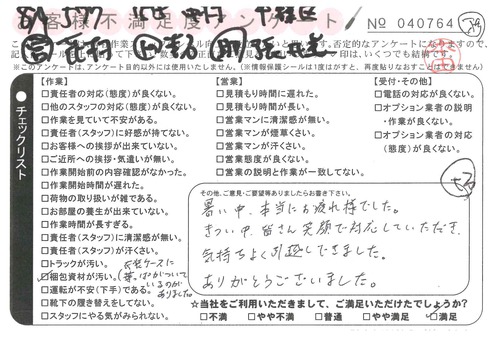 お客様不満足度アンケート
No 040764
※このアンケートは、アンケート目的以外には使用いたしません。(※情報保護シールは1度はがすと、再度貼りなおすことはできません)
チェックリスト
【作業】
□責任者の対応(態度)が良くない。
□他のスタッフの対応(態度)が良くない。
□作業を見ていて不安がある。
□責任者(スタッフ)に好感が持てない。
□お客様への挨拶が出来ていない。
□ご近所への挨拶・気遣いが無い。
□作業開始前の内容確認がなかった。
□作業開始時間が遅れた。
□荷物の取り扱いが雑である。
□お部屋の養生が出来ていない。
□作業時間が長すぎる。
□責任者(スタッフ)に清潔感が無い。
□責任者(スタッフ)が汗くさい。
□トラックが汚い。
□梱包資材が汚い。
□運転が不安(下手)である。
□靴下の履き替えをしてない。
□スタッフにやる気がみられない。
ケースに
ついて
いるのが
ありました。
【営業】
□見積もり時間に遅れた。
□見積もり時間が長い。
□営業マンに清潔感が無い。
□営業マンが煙草くさい。
□営業マンが汗くさい。
□営業態度が良くない。
□営業の説明と作業が一致してない。
【受付・その他】
□電話の対応が良くない。
□オプション業者の説明
・作業が良くない。
□オプション業者の対応
(態度)が良くない。
その他、ご意見・ご要望等ありましたらお書き下さい。
暑い中、本当にお疲れ様でした。
きつい中、皆さん笑顔で対応していただき、
気持ちよく引越しできました。
ありがとうございました。
☆当社をご利用いただきまして、ご満足いただけたでしょうか?
□不満 □やや不満 □普通 □やや満足 □満足